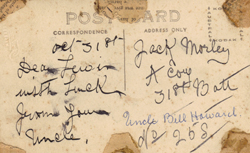 POST CARD
CORRESPONDENCE
ADDRESS ONLY
Oct 31st
Dear Lewis
with Luck
from your
Uncle.
Jack Morley
A Coy
31st Batt
Uncle Bill Howard.